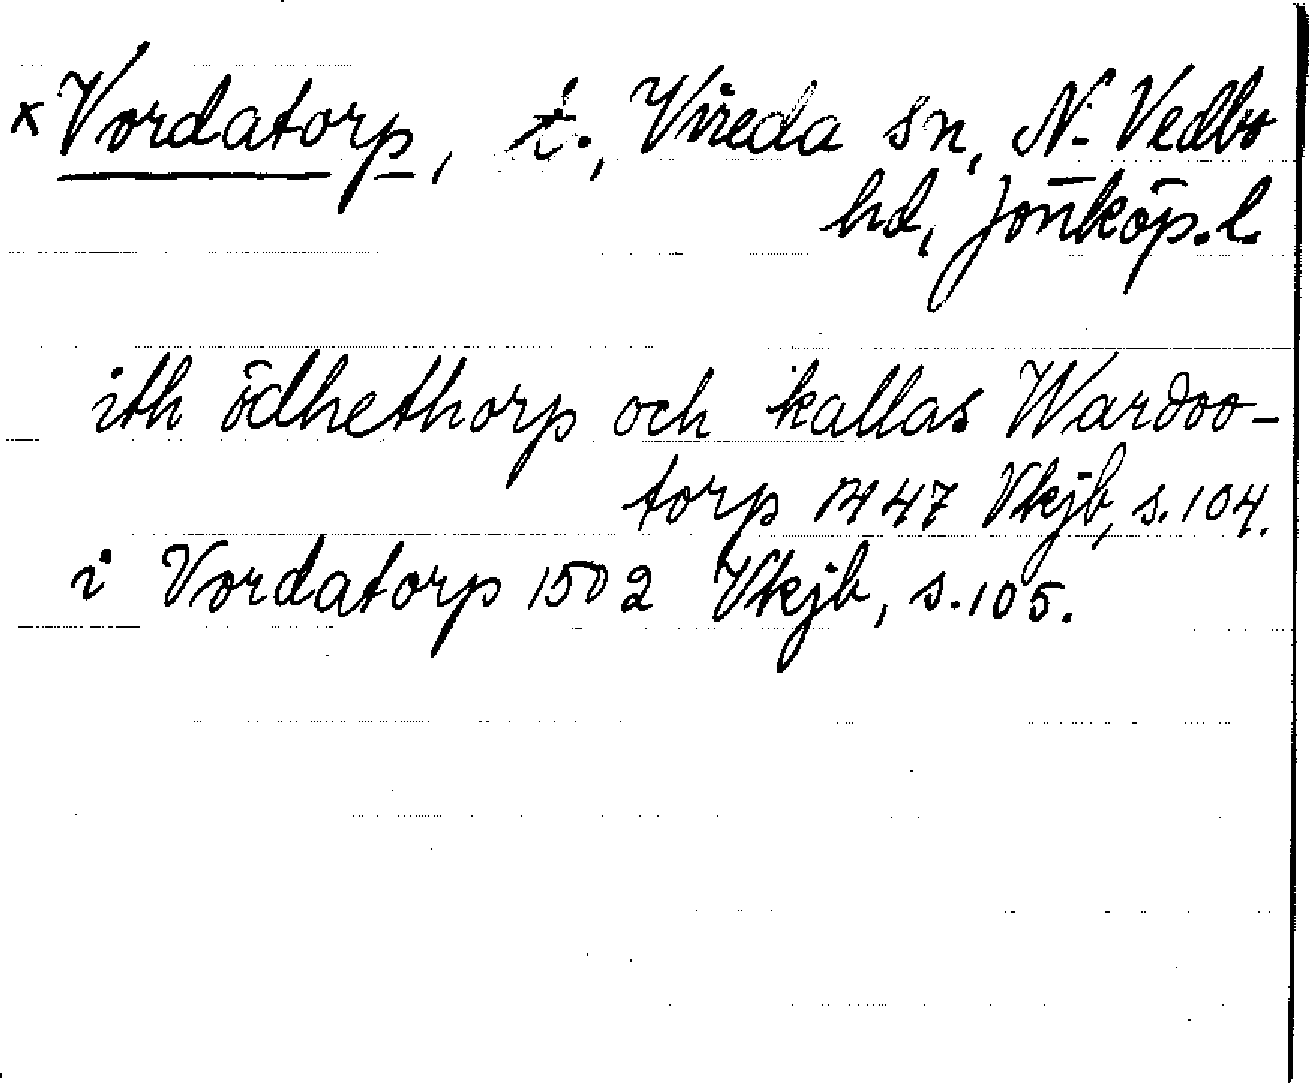 x Vordatorp, t., Vireda sn, N. Vedbo
hd, Jönköp. l.
ith ödhethorp och kallas Wardoo-
torp 1447 Vkjb, s. 104.
i Vordatorp 1502 Vkjb, s. 105.